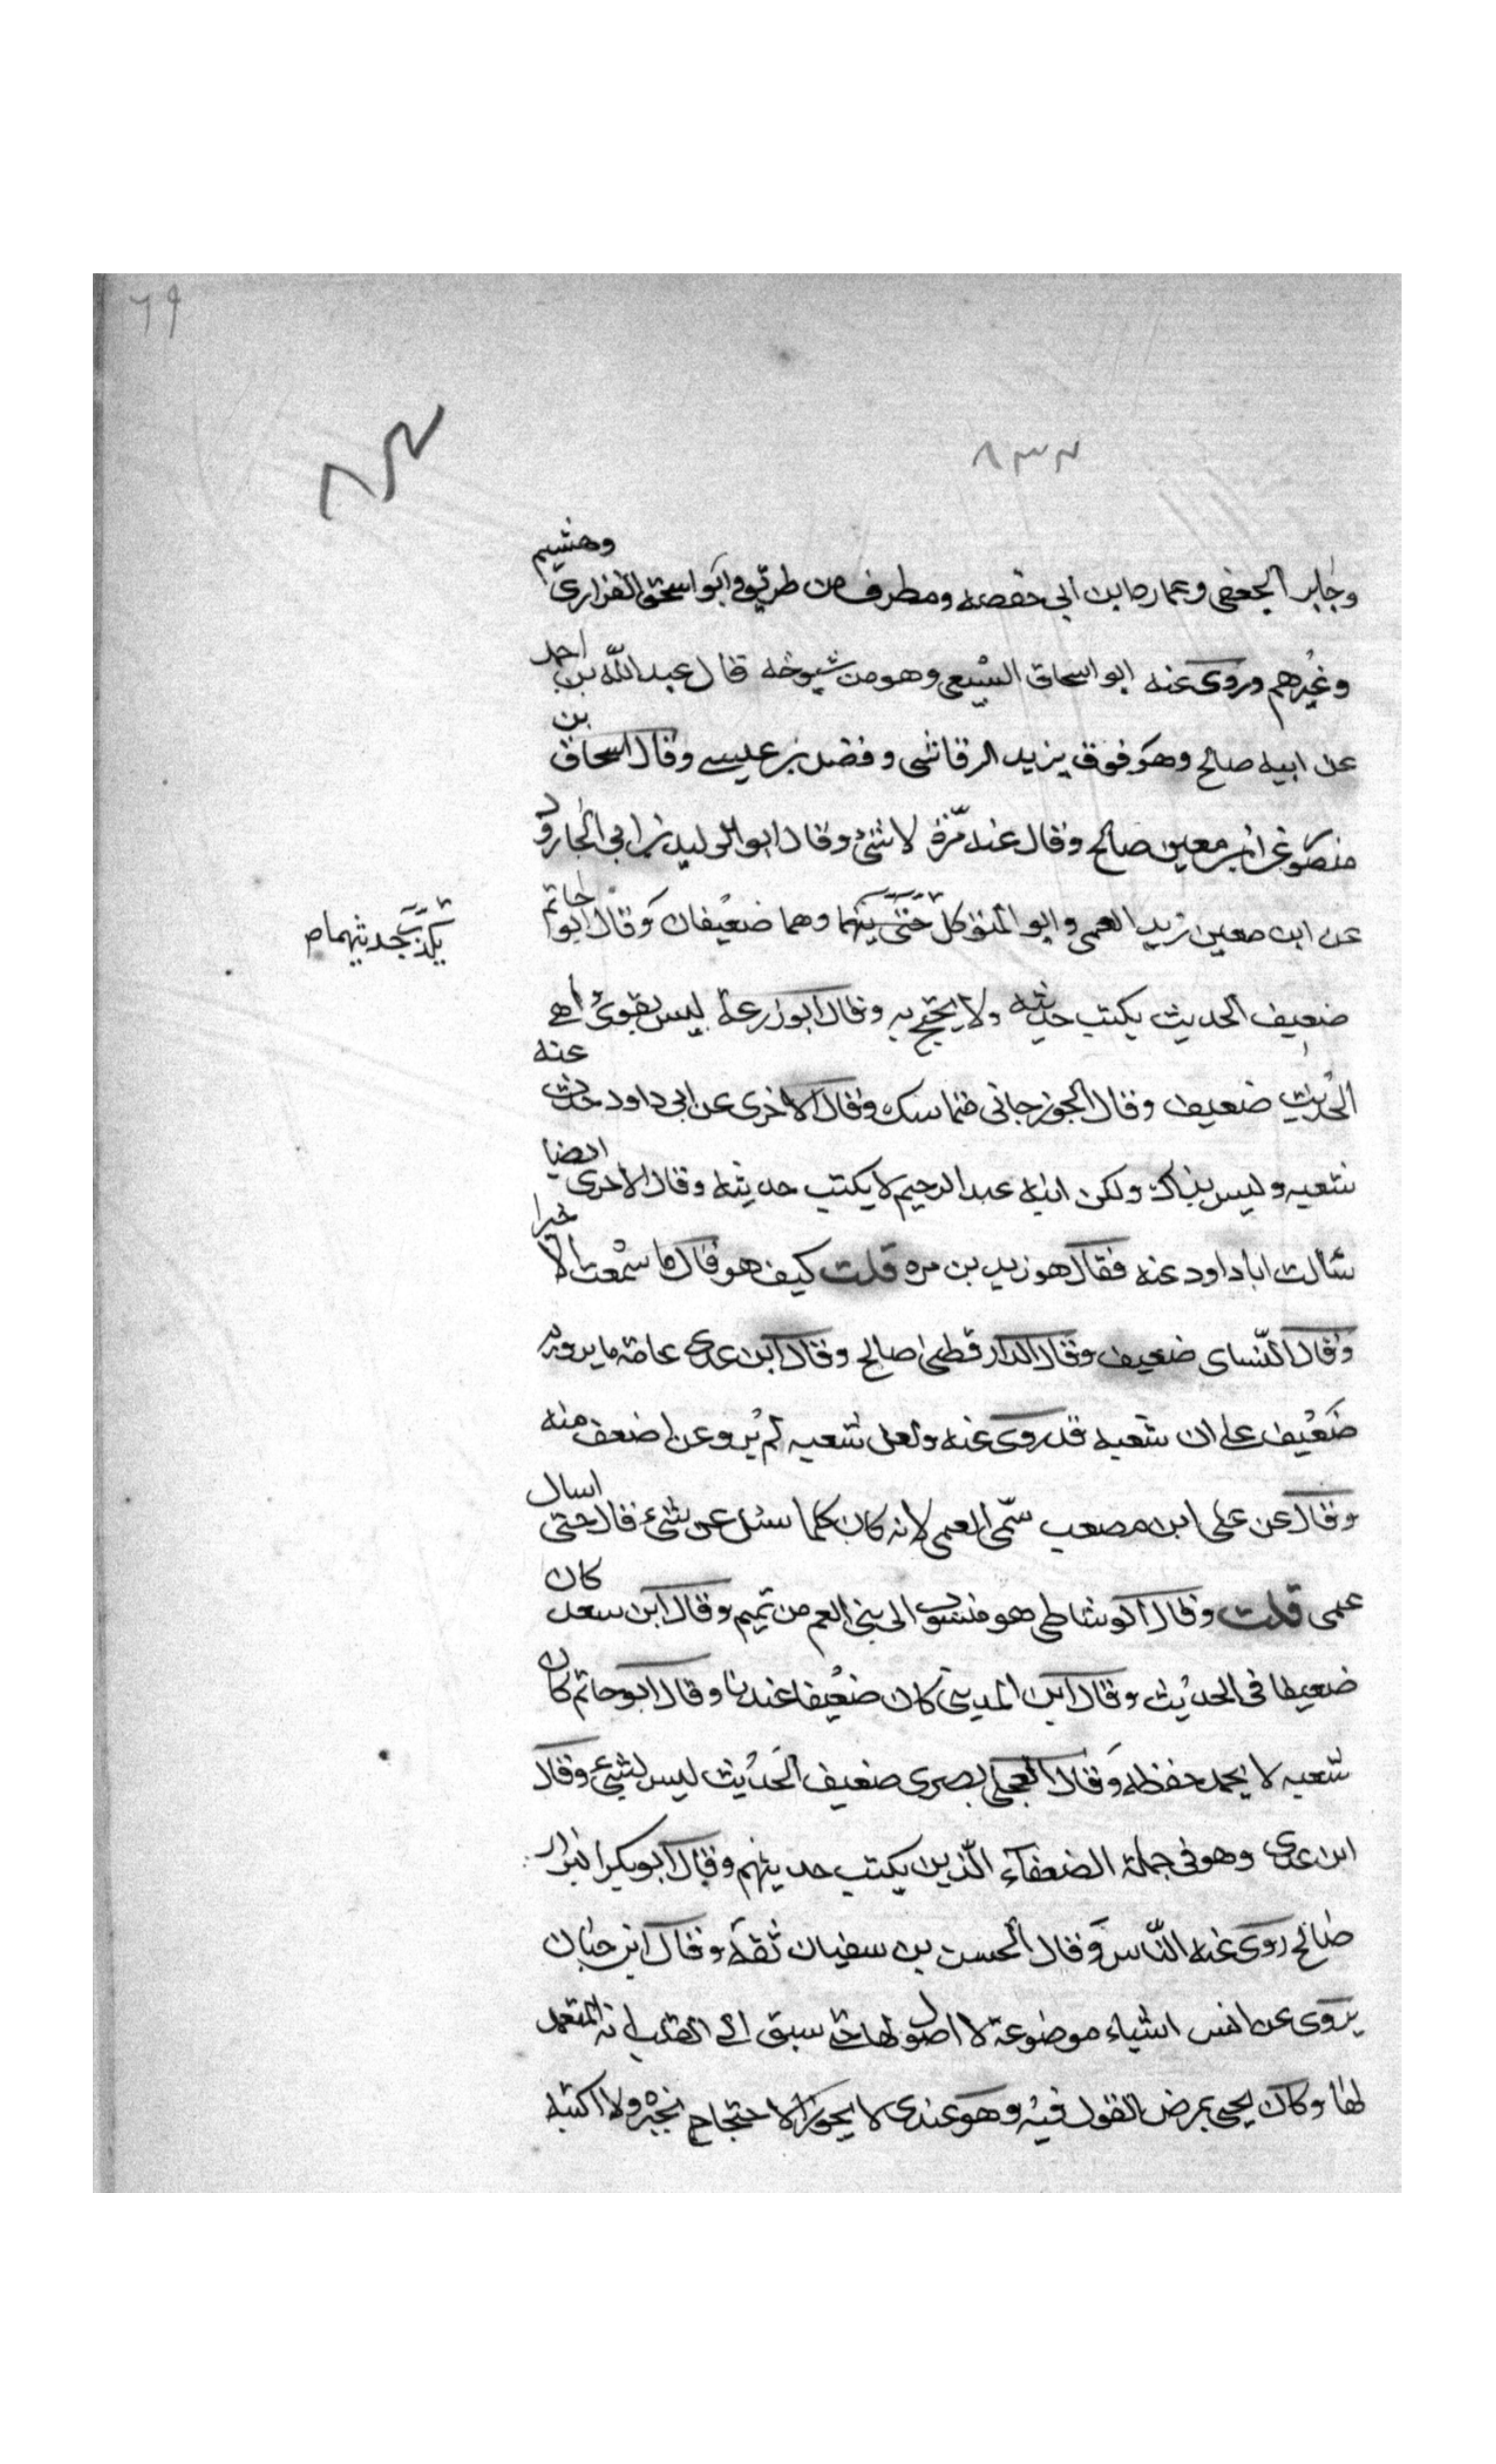 ٦٩
٨٣٢
وجابر الجعفى وعمارة بن ابي حفصه ومطرف بن طريق وابو اسحق الفزارى وهشيم
وغيرهم وروى عنه ابو اسحاق السبيعى وهو من شيوخه قال عبد الله بن احمد
عن ابيه صالح وهو فوق يزيد الرقاشى وفضل بن عيسى وقال اسحاق بن
منصور عن ابن معين صالح وقال عنه مرة لا شئ وقال ابو الوليد بن ابى الجارود
عن ابن معين زيد العمى وابو المتوكل وهما ضعيفان وقال ابو حاتم
يكتب حديثهما م
ضعيف الحديث يكتب حديثه ولا يحتج به وقال ابو زرعة ليس بقوى واهى
الحديث ضعيف وقال الجوزجانى متماسك وقال الآخرى عن ابى داود حدث عنه
شعبه وليس بذاك ولكن ابنه عبد الرحيم لا يكتب حديثه وقال الآخرى ايضا
سألت ابا داود عنه فقال هو زيد بن مره قلت كيف هو قال ما سمعت الا خيرا
وقال النساى ضعيف وقال الدارقطنى صالح وقال ابن عدى عامة ما يرويه
ضعيف على ان شعبه قد روى عنه ولعل شعبه لم يرو عن اضعف منه
وقال عن على ابن مصعب سمى العمى لانه كان كلما سئل عن شئ قال حتى اسال
عمى قلت وقال الوشاطى هو منسوب الى بنى العم من تميم وقال ابن سعد كان
ضعيفا فى الحديث وقال ابن المدينى كان ضعيفا عندنا وقال ابو حاتم كان
شعبه لا يحمد حفظه وقال العجلى بصرى ضعيف الحديث ليس بشئ وقال
ابن عدى وهو فى جملة الضعفاء الذين يكتب حديثهم وقال ابو بكر البزار
صالح روى عنه الناس وقال الحسن بن سفيان ثقة وقال ابن حبان
يروى عن انس اشياء موضوعة لا اصول لها حتى سبق الى القلب انه المتعمد
لها وكان يحيى يمرض القول فيه وهو عندى لا يجوز الاحتجاج بخبره ولا اكتبه